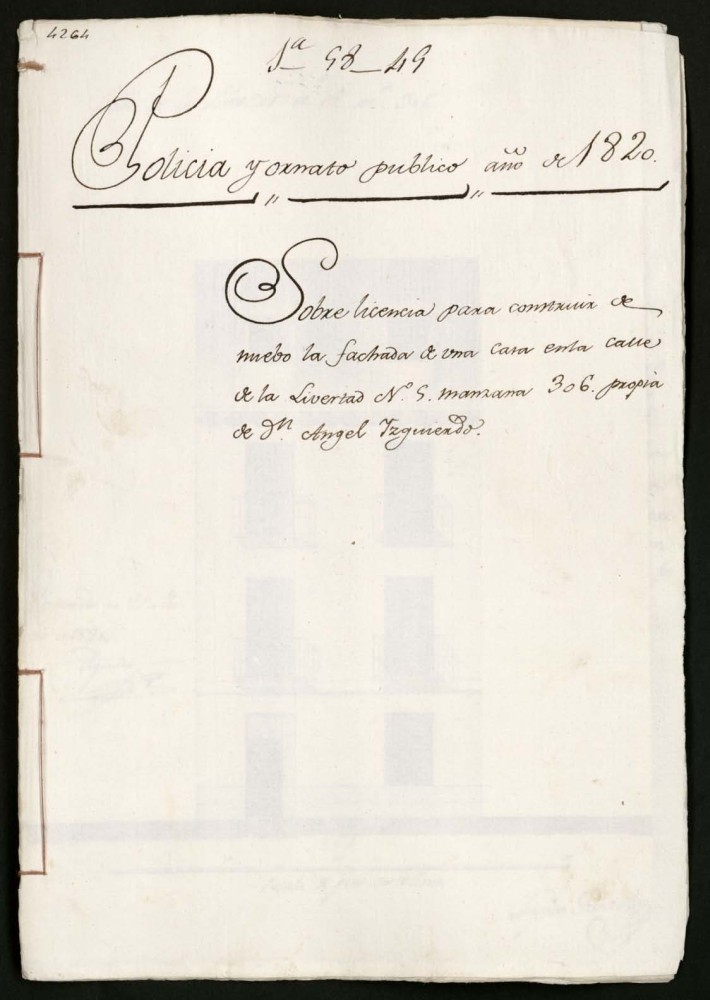 4264
1ª 58-45
Policia y ornato publico año de 1820.
Sobre licencia para construir de
nuebo la fachada de una casa enla calle
de la Livertad Nº 5. manzana 306. propia
de Dn Angel Yzquierdo.